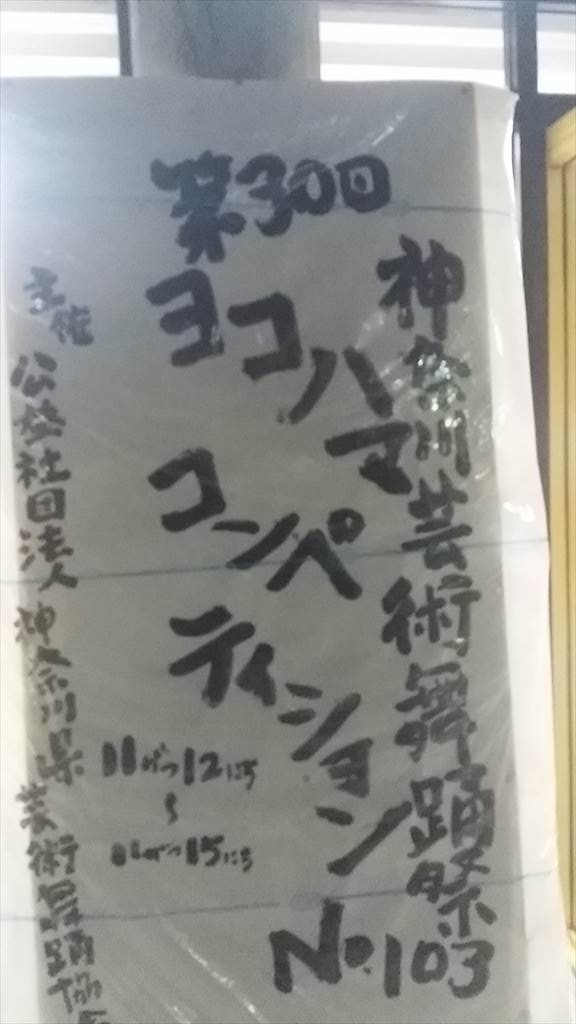 神奈川芸術舞踊祭 No.103
第30回
ヨコハマ
コンペ
ティション
11がつ12にち
〜
11がつ15にち
主催
公益社団法人 神奈川県芸術舞踊協会